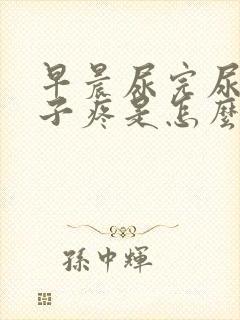 早晨尿完尿
子疼是怎麼
孫中輝